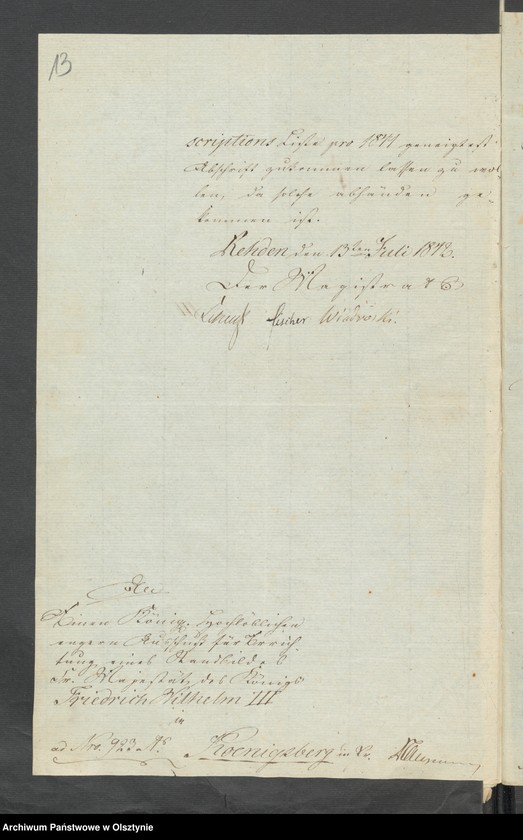 13
scriptions Liste pro 1841 geneigtest
Abschrift zukommen lassen zu wol
len, da solche abhänden ge-
kommen ist.
Rehden, den 13ten Juli 1842.
Der Magistrat
Fischer
An
Einen König. Hochlöblichen
engern Ausschuß für Errich-
tung eines Standbildes
Sr. Majestät des Königs
Friedrich Wilhelm III
in
ad Nro. 923
Koenigsberg in Pr.
Archiwum Państwowe w Olsztynie